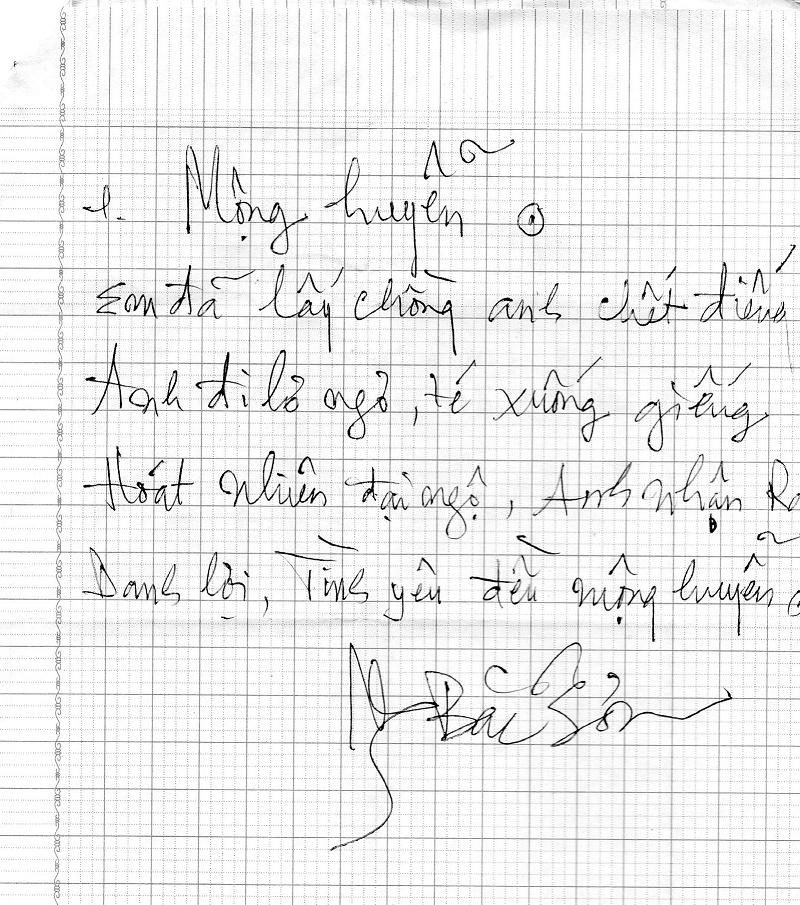 1. Mộng huyễn
Em đã lấy chồng anh chết điếng
Anh đi lơ ngơ, té xuống giếng
Hoát nhiên đại ngộ, Anh nhận Ra
Danh lợi, Tình yêu đều mộng huyễn
Bắc Sơn